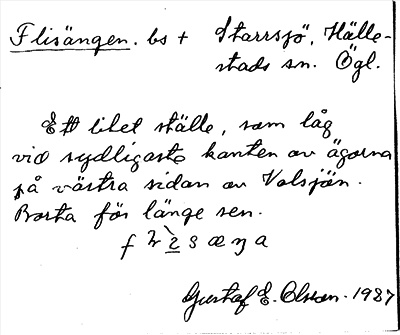 Flisängen. bs + Starrsjö, Hälle-
stads sn. Ögl.
Ett litet ställe, som låg
vid sydligaste kanten av ägorna
på västra sidan av Valsjön.
Borta för länge sen.
Gustaf E. Olsson. 1937